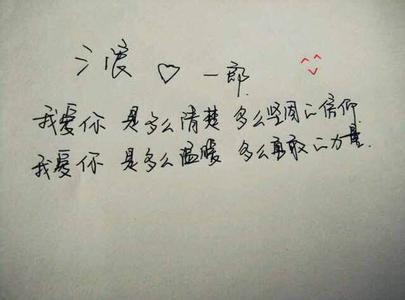 渡 ♡ 一郎
我爱你 是多么清楚 多么坚固的信仰
我爱你 是多么温暖 多么勇敢的力量